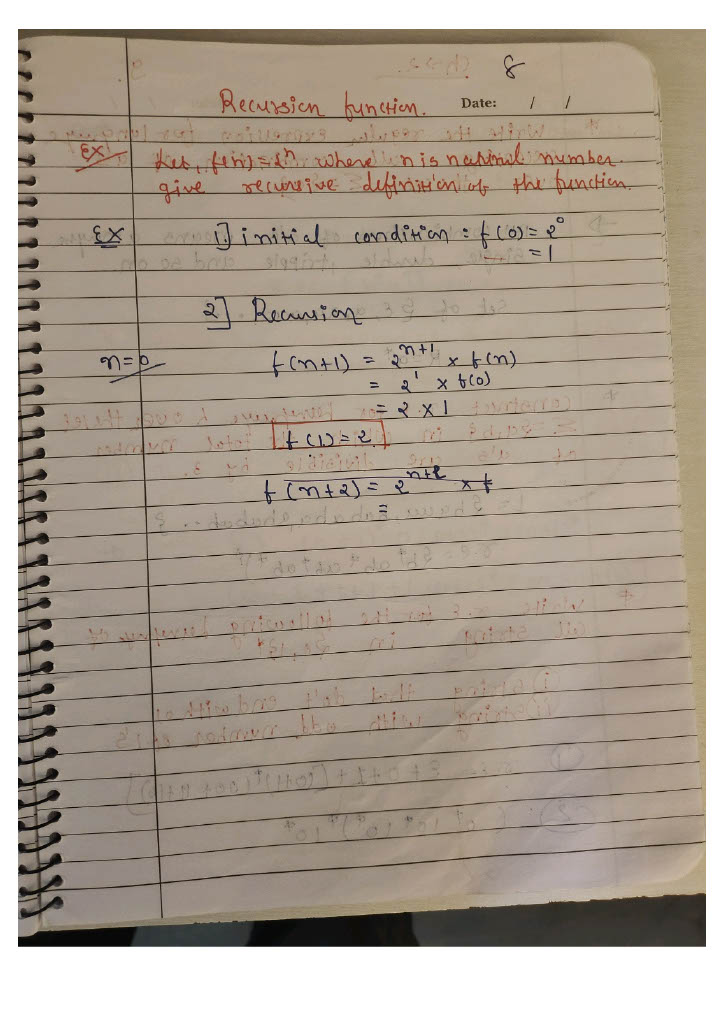 8
Recursion function. Date: / /
Ex Let, f(n) = 2^n where n is natural number.
give recursive definition of the function.
Ex 1] initial condition : f(0) = 2^0
= 1
2] Recursion
n=0 f(n+1) = 2^{n+1} × f(n)
= 2^1 × f(0)
= 2 × 1
f(1) = 2
f(n+2) = 2^{n+2} × f
=